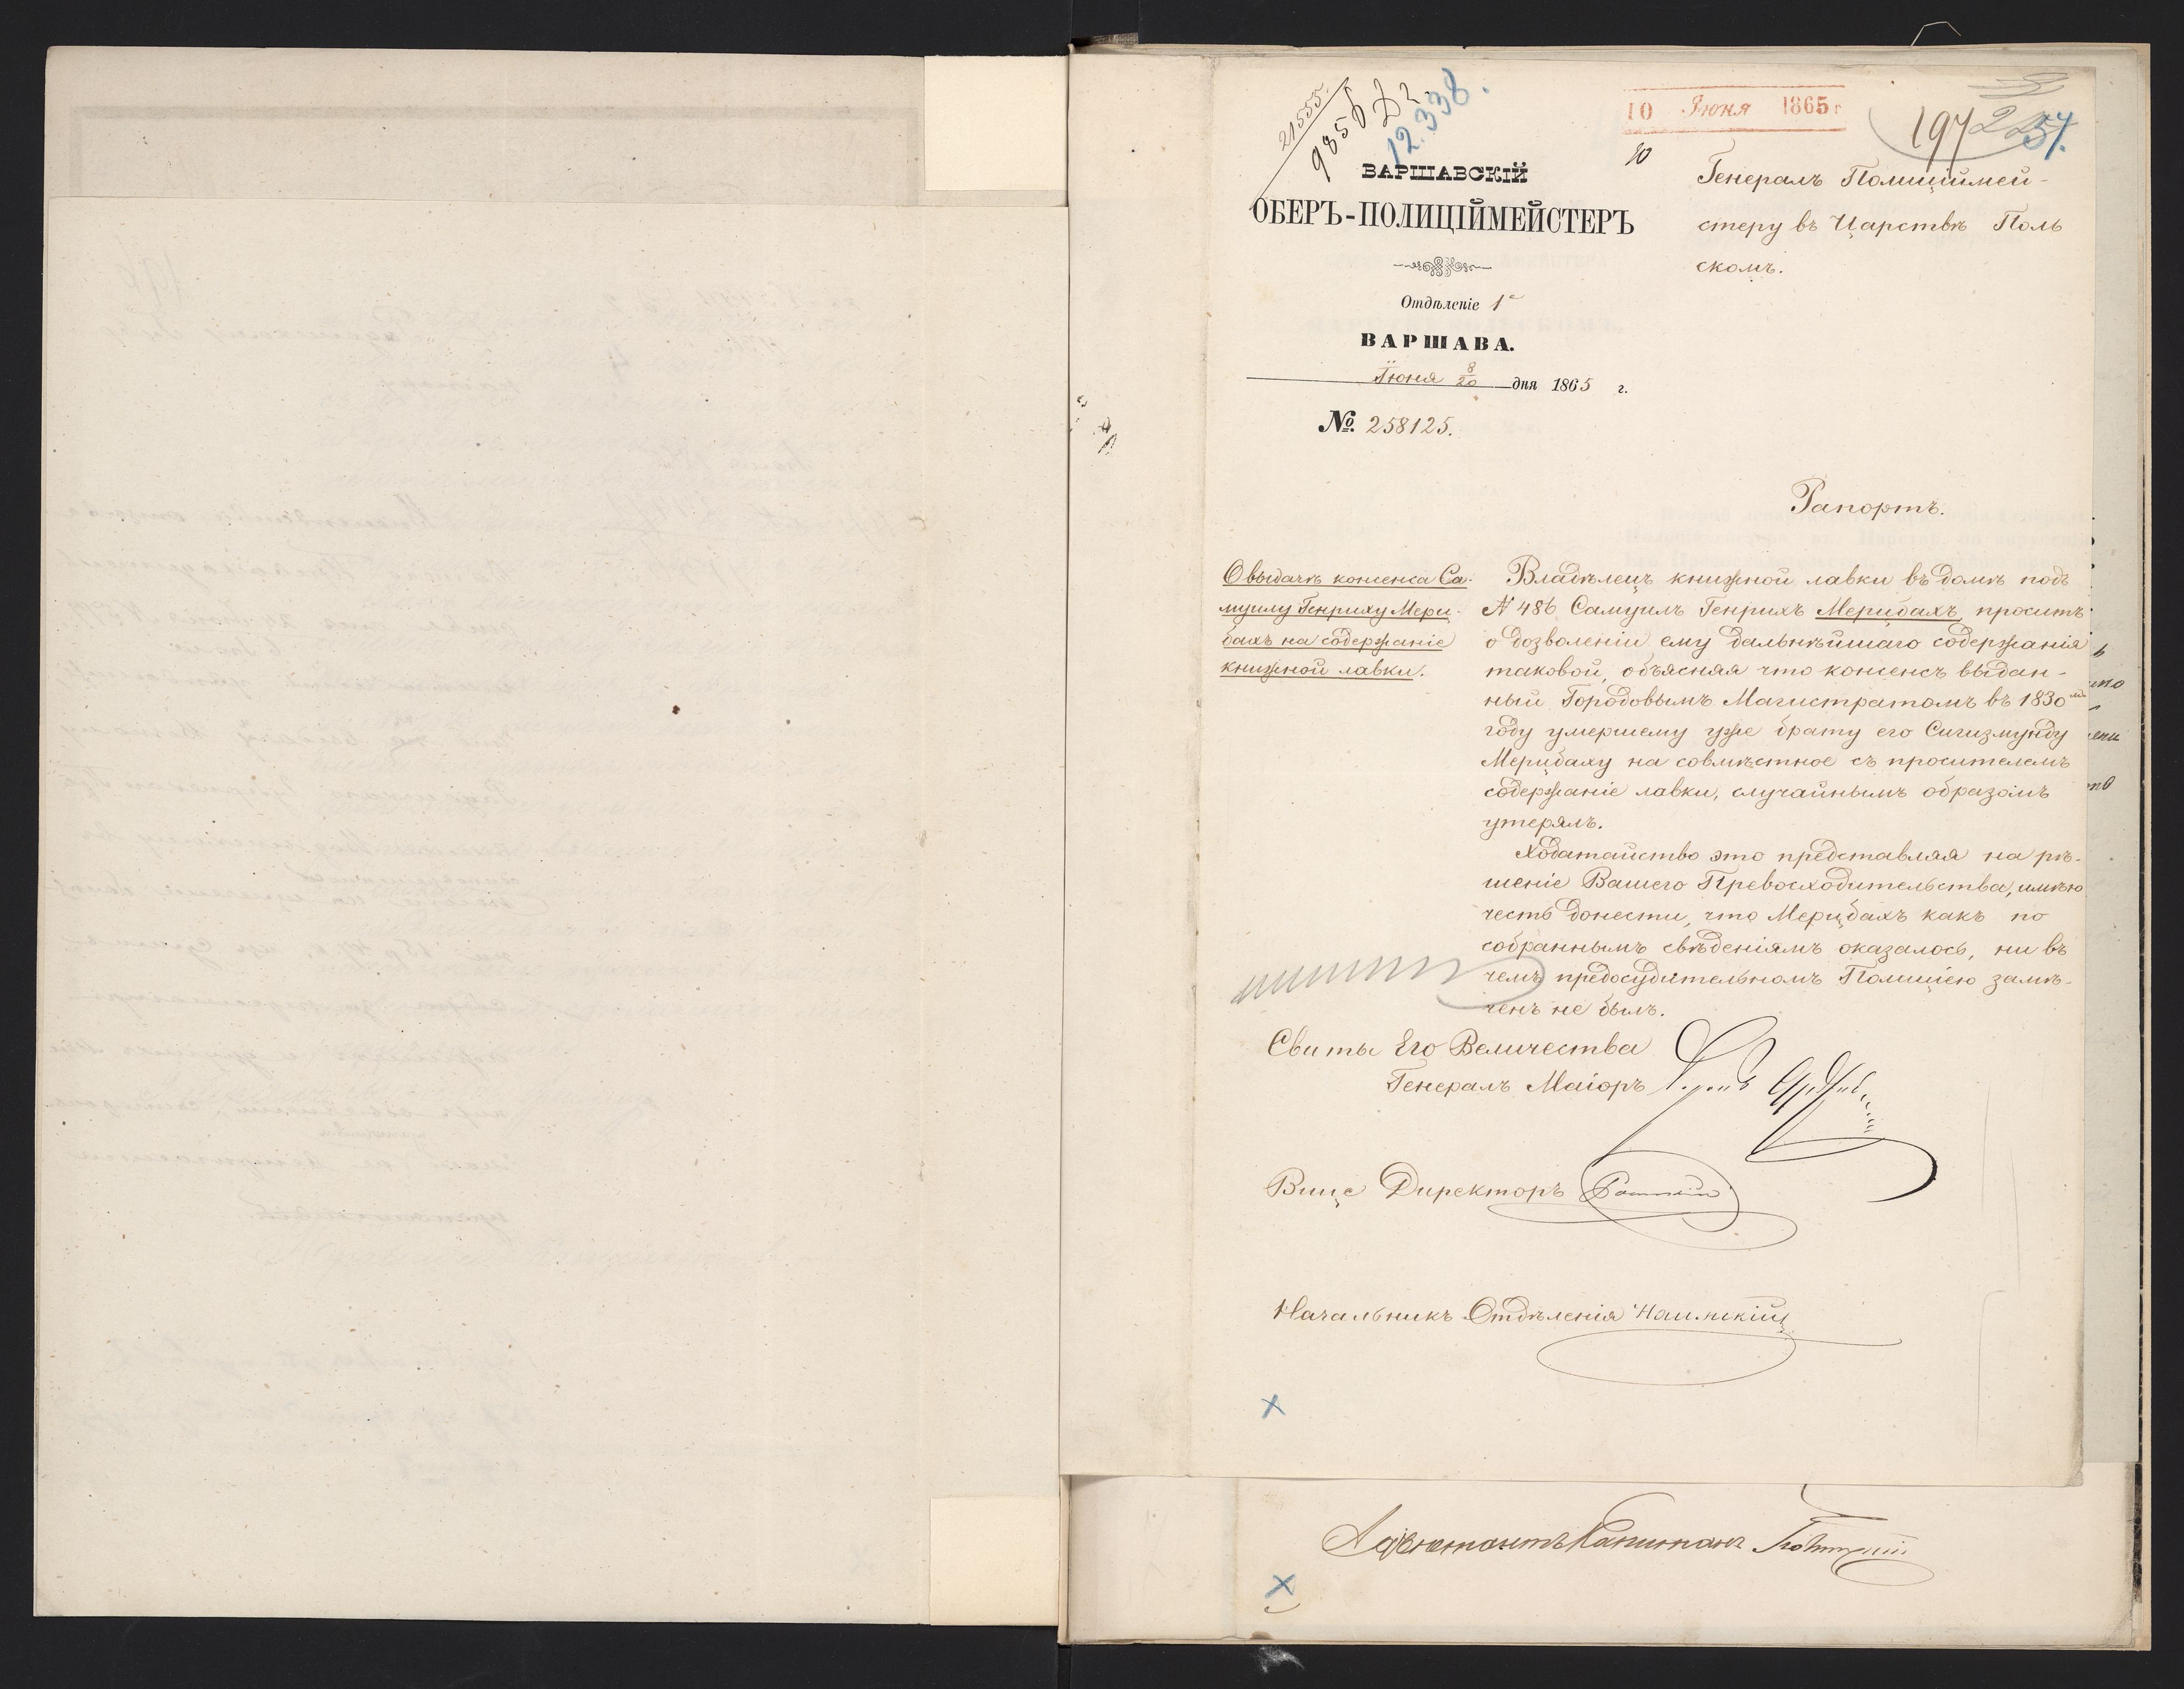 21555.
9856 Д2
12.338.
10 Июня 1865 г
10
197
ВАРШАВСКІЙ
ОБЕРЪ-ПОЛИЦІЙМЕЙСТЕРЪ
Отдѣленіе 1е
ВАРШАВА.
Іюня 8/20 дня 1865 г.
№. 258125.
Генералъ Полиціймей-
стеру въ Царствѣ Поль
скомъ.
Рапортъ.
О выдачѣ консенса Са-
муилу Генриху Мерц-
бахъ на содержаніе
книжной лавки.
Владѣлецъ книжной лавки въ домѣ подъ
N 486 Самуилъ Генрихъ Мерцбахъ проситъ
о дозволеніи ему дальнѣйшаго содержанія
таковой, объясняя что консенсъ выдан-
ный Городовымъ Магистратомъ въ 1830мъ
году умершему уже брату его Сигизмунду
Мерцбаху на совмѣстное съ просителемъ
содержаніе лавки, случайнымъ образомъ
утерялъ.
Ходатайство это представляя на рѣ-
шеніе Вашего Превосходительства, имѣю
честь донести, что Мерцбахъ какъ по
собраннымъ свѣденіямъ оказалось, ни въ
чемъ предосудительномъ Полиціею замѣ-
ченъ не былъ.
Свиты Его Величества
Генералъ Маіоръ
Вице Директоръ
Начальникъ Отдѣленія
Адъютантъ Капитанъ